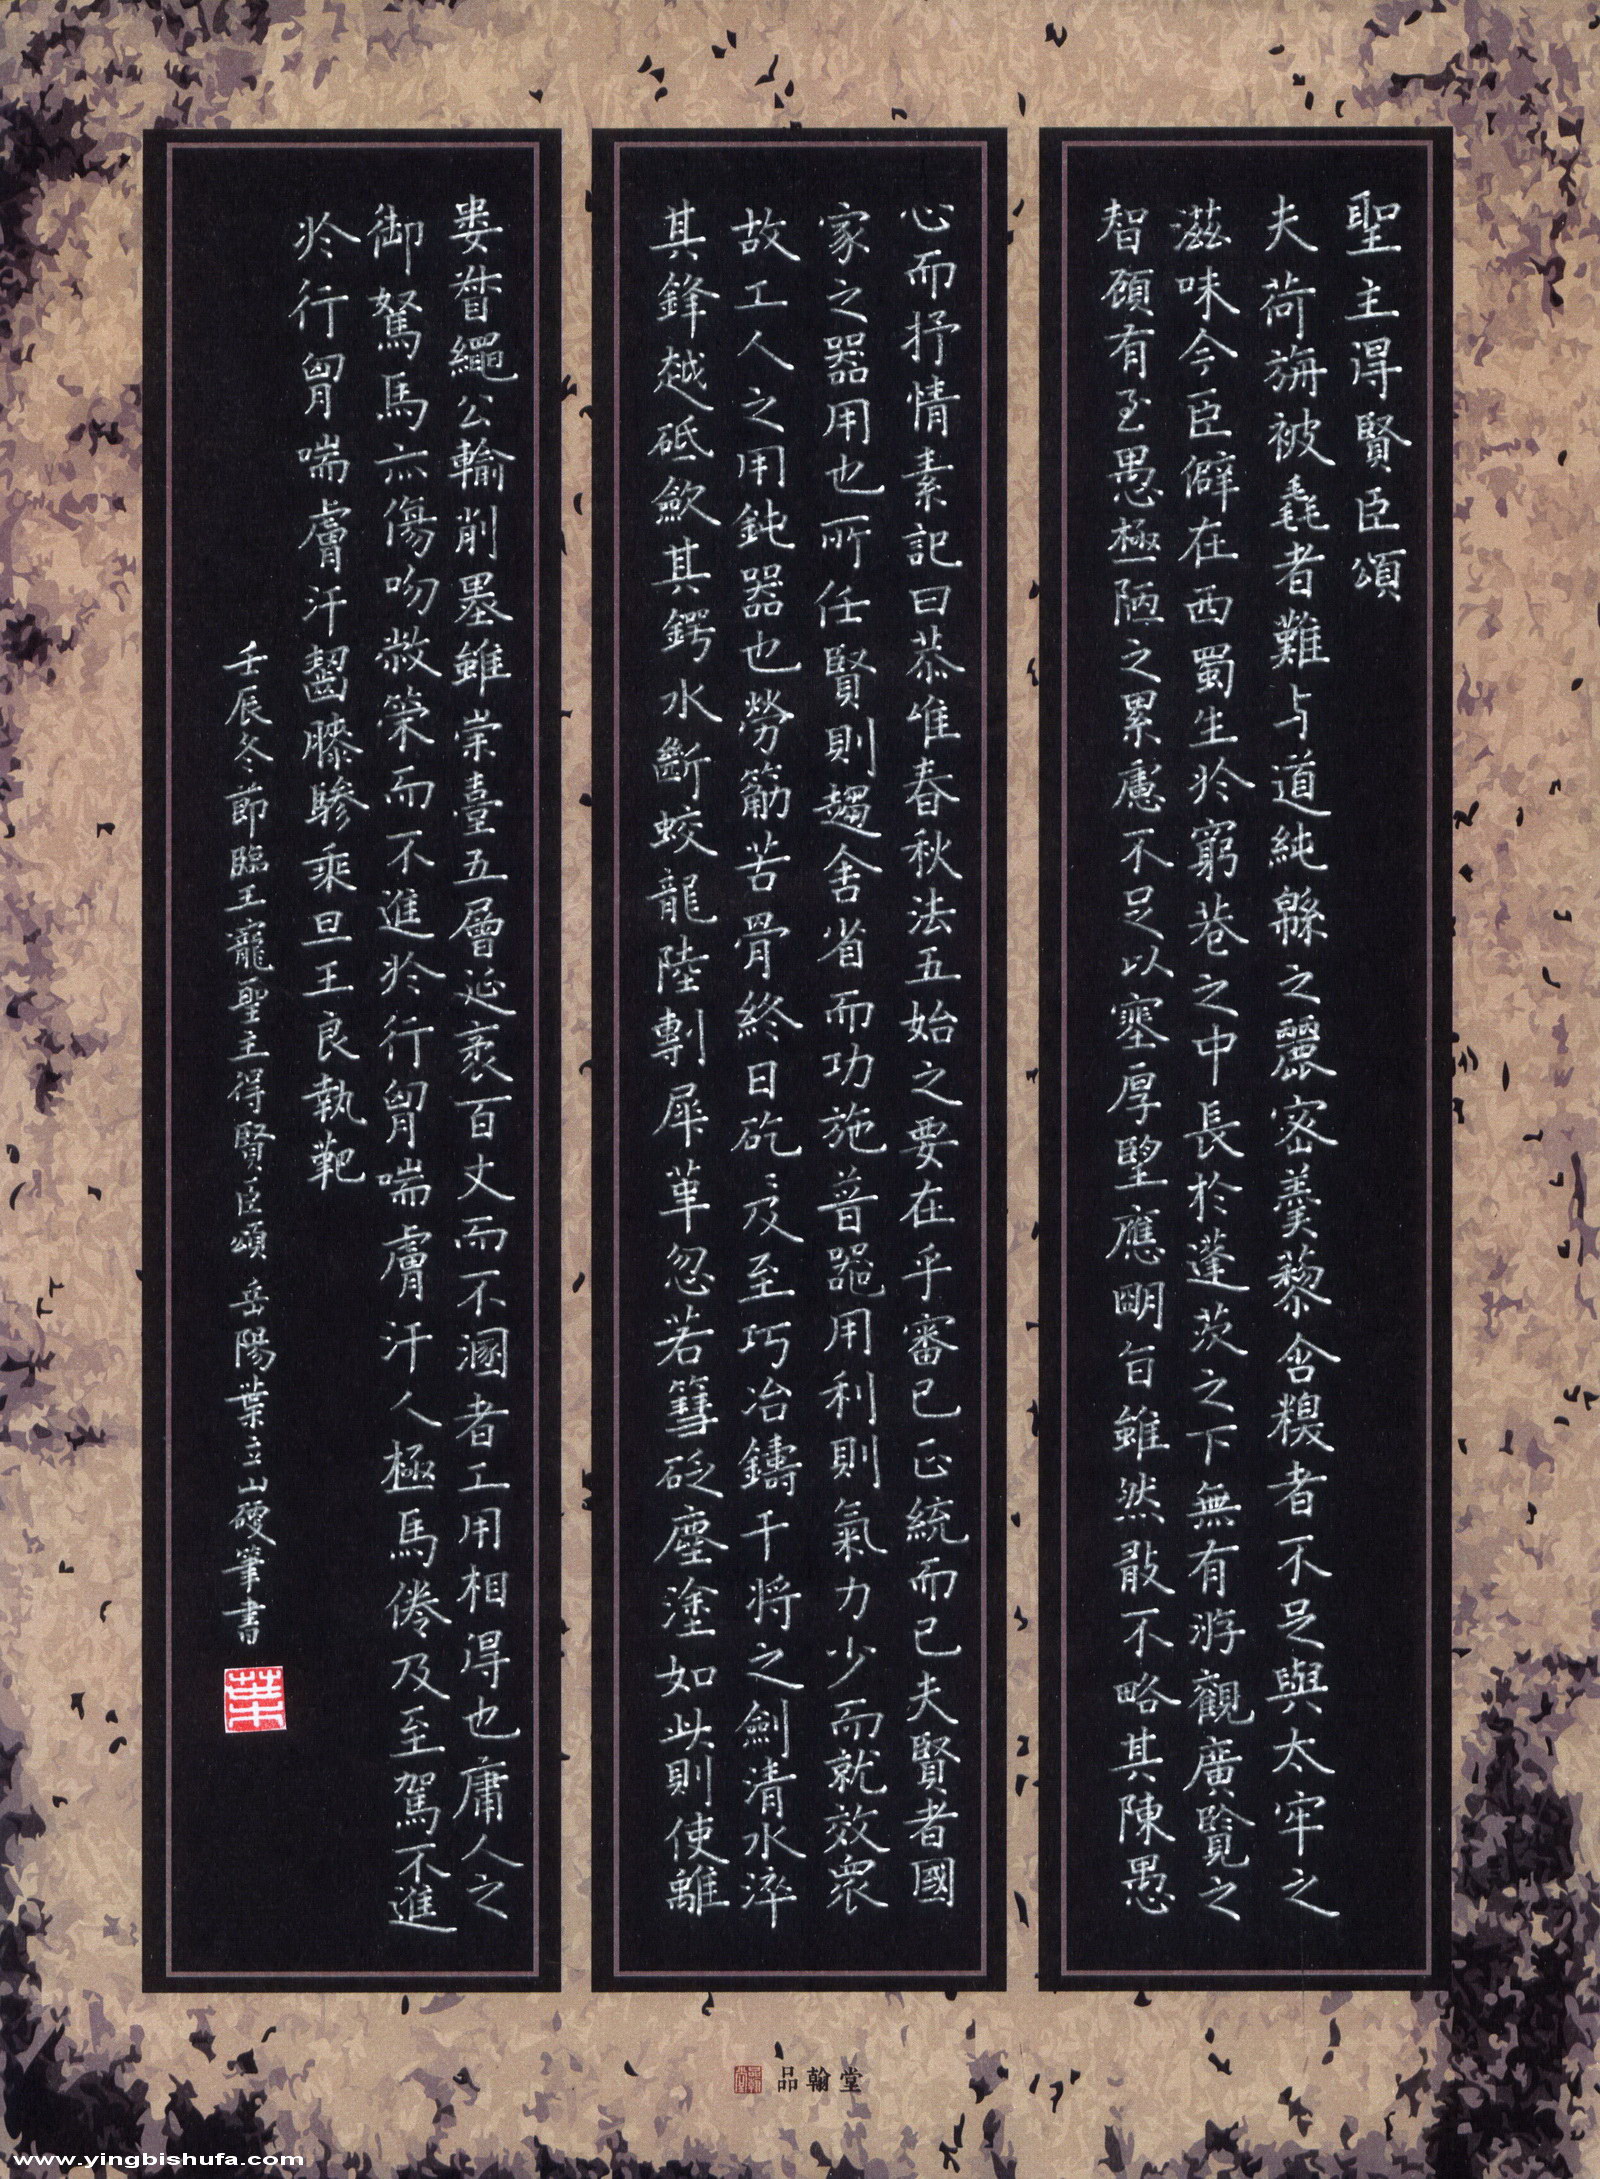 聖主得賢臣頌
夫荷旃被毳者難与道純緜之麗密羹藜含糗者不足與太牢之
滋味今臣僻在西蜀生於窮巷之中長於蓬茨之下無有游觀廣覽之
智頋有至愚極陋之累慮不足以塞厚望應明旨雖然敢不略其陳愚
心而抒情素記曰恭惟春秋法五始之要在乎審已正統而已夫賢者國
家之器用也所任賢則趨舍省而功施普器用利則氣力少而就效衆
故工人之用鈍器也勞筋苦骨終日矻〻及至巧冶鑄干將之劍清水淬
其鋒越砥歛其鍔水斷蛟龍陸剸犀革忽若篲砭塵塗如此則使離
婁督繩公輸削墨雖崇臺五層延袤百丈而不溷者工用相得也庸人之
御駑馬亦傷吻敝策而不進於行胷喘膚汗人極馬倦及至駕不進
於行胷喘膚汗齧膝驂乘旦王良執靶
壬辰冬節臨王寵聖主得賢臣頌 岳陽葉立山硬筆書
葉
品翰堂
www.yingbishufa.com